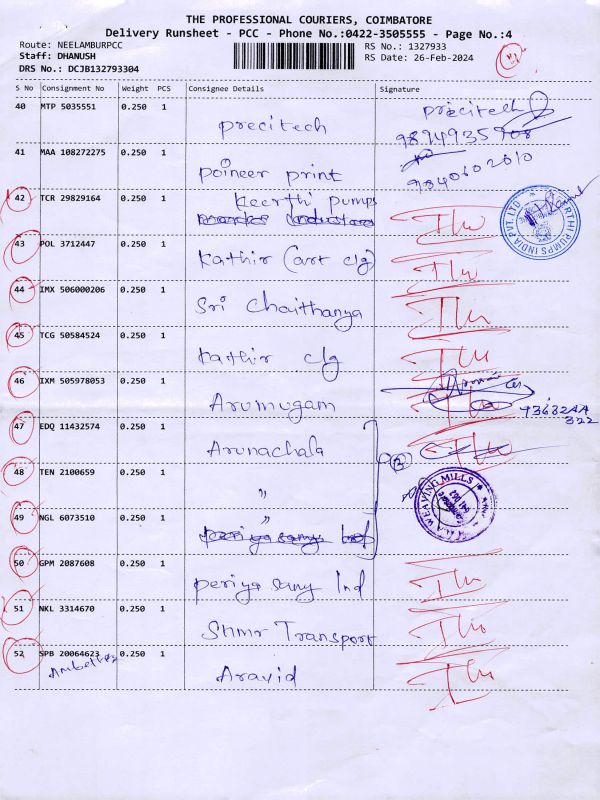 THE PROFESSIONAL COURIERS, COIMBATORE
Delivery Runsheet - PCC - Phone No.:0422-3505555 - Page No.:4
Route: NEELAMBURPCC
RS No.: 1327933
Staff: DHANUSH
RS Date: 26-Feb-2024
DRS No.: DCJB132793304
S No Consignment No Weight PCS Consignee Details Signature
40 MTP 5035551 0.250 1 precitech precitech
9894935708
41 MAA 108272275 0.250 1 poineer print 9840602010
42 TCR 29829164 0.250 1 keerthi pumps
43 POL 3712447 0.250 1 kathir (art clg)
44 IMX 506000206 0.250 1 Sri Chaithanya
45 TCG 50584524 0.250 1 kathir clg
46 IXM 505978053 0.250 1 Arumugam
47 EDQ 11432574 0.250 1 Arunachala
48 TEN 2100659 0.250 1 "
49 NGL 6073510 0.250 1 "
50 GPM 2087608 0.250 1 periya samy Ind
51 NKL 3314670 0.250 1 Shmr Transport
52 SPB 20064623 0.250 1 Aravid